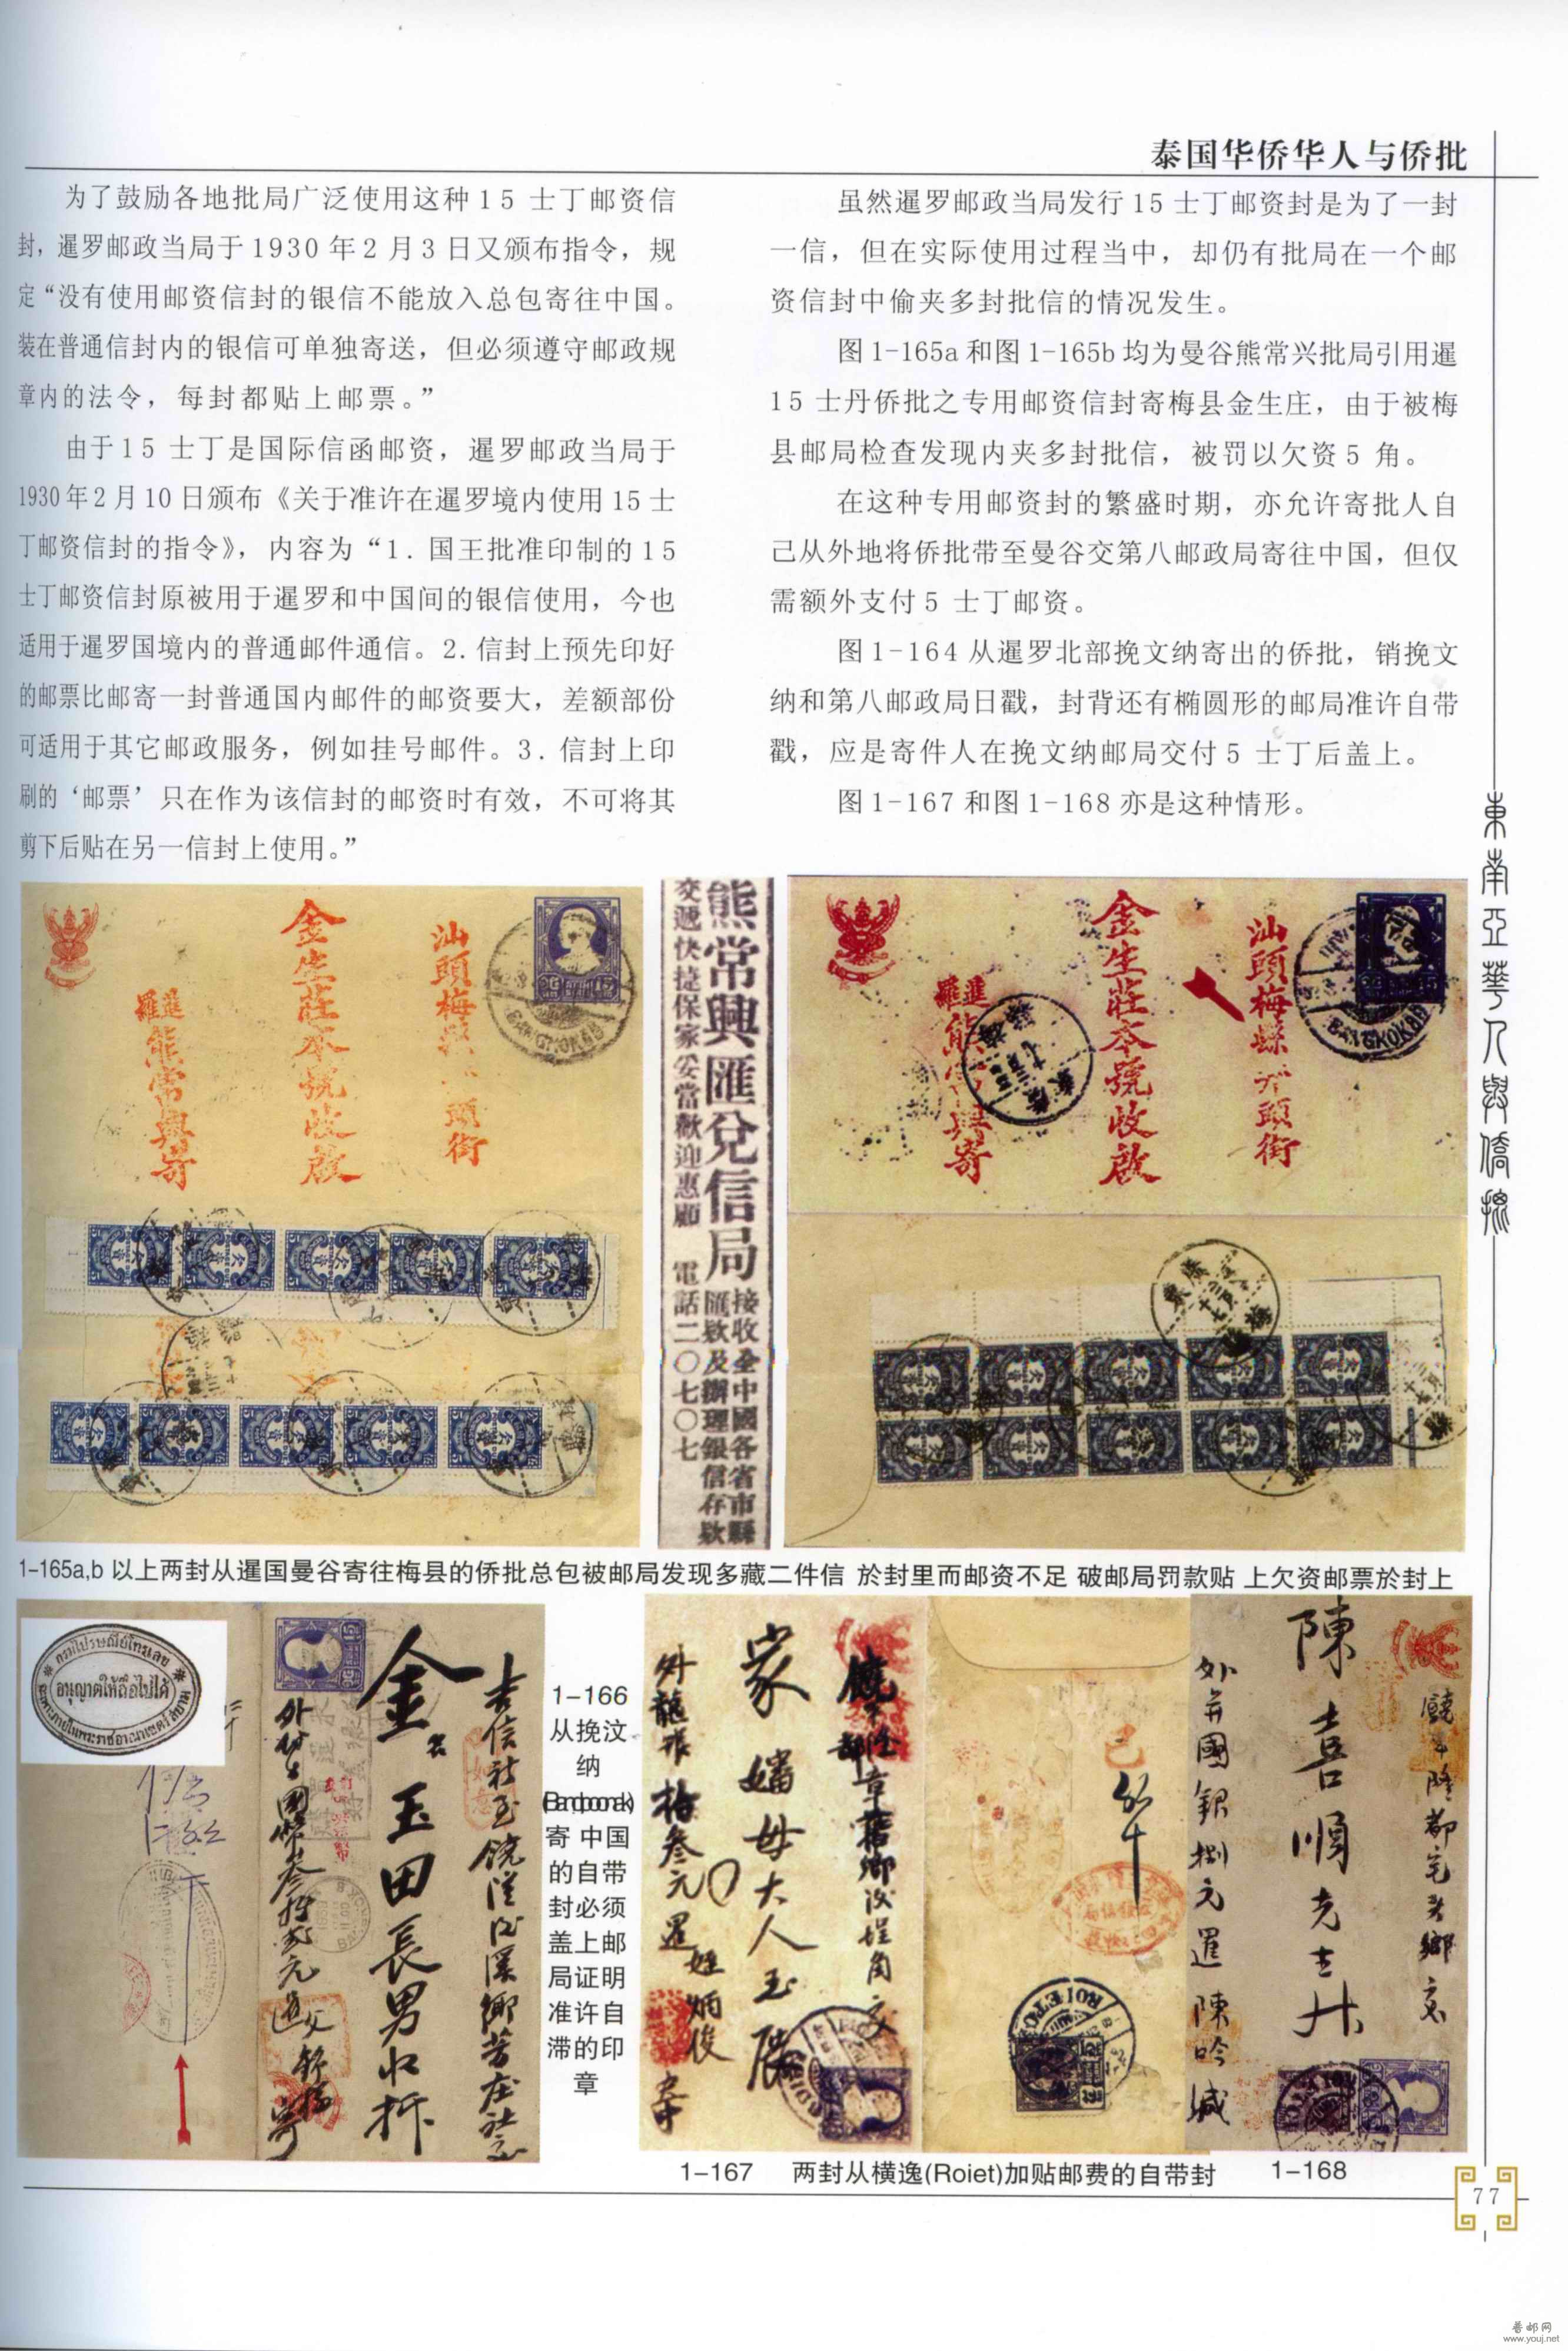 泰国华侨华人与侨批
为了鼓励各地批局广泛使用这种15 士丁邮资信
封，暹罗邮政当局于1930年2月3日又颁布指令，规
定“没有使用邮资信封的银信不能放入总包寄往中国。
装在普通信封内的银信可单独寄送，但必须遵守邮政规
章内的法令，每封都贴上邮票。”
由于15 士丁是国际信函邮资，暹罗邮政当局于
1930年2月10日颁布《关于准许在暹罗境内使用15士
丁邮资信封的指令》，内容为“1. 国王批准印制的15
士丁邮资信封原被用于暹罗和中国间的银信使用，今也
适用于暹罗国境内的普通邮件通信。2. 信封上预先印好
的邮票比邮寄一封普通国内邮件的邮资要大，差额部份
可适用于其它邮政服务，例如挂号邮件。3. 信封上印
刷的‘邮票’只在作为该信封的邮资时有效，不可将其
剪下后贴在另一信封上使用。”
虽然暹罗邮政当局发行15士丁邮资封是为了一封
一信，但在实际使用过程当中，却仍有批局在一个邮
资信封中偷夹多封批信的情况发生。
图1-165a和图1-165b均为曼谷熊常兴批局引用暹
15士丹侨批之专用邮资信封寄梅县金生庄，由于被梅
县邮局检查发现内夹多封批信，被罚以欠资5 角。
在这种专用邮资封的繁盛时期，亦允许寄批人自
己从外地将侨批带至曼谷交第八邮政局寄往中国，但仅
需额外支付5 士丁邮资。
图1-164从暹罗北部挽文纳寄出的侨批，销挽文
纳和第八邮政局日戳，封背还有椭圆形的邮局准许自带
戳，应是寄件人在挽文纳邮局交付5 士丁后盖上。
图1-167和图1-168亦是这种情形。
東南亞華人與僑批
汕頭梅 頭街
金生莊本號收啟
暹羅熊常興寄
BANGKOK
熊常興匯兌信局
交遞快捷保家妥當歡迎惠顧 電話二〇七〇七
接收全中國各省市縣
匯欵及辦理銀信存欵
汕頭梅縣 頭街
金生莊本號收啟
暹羅熊 興寄
BANGKOK
1-165a,b 以上两封从暹国曼谷寄往梅县的侨批总包被邮局发现多藏二件信 於封里而邮资不足 破邮局罚款贴 上欠资邮票於封上
กรมไปรษณีย์โทรเลข
อนุญาตให้ถือไปได้
金 玉田長男收拆
1-166
从挽汶
纳
(Bandpoonak)
寄 中国
的自带
封必须
盖上邮
局证明
准许自
滞的印
章
家嬸母大人玉展
外龍銀拾叁元 暹姪炳俊
ROIET
陳喜順先生升
饒平隆都宅头鄉交
外弁國銀捌元暹陳吟緘
1-167 两封从横逸(Roiet)加贴邮费的自带封 1-168
77
普邮网
www.youj.net